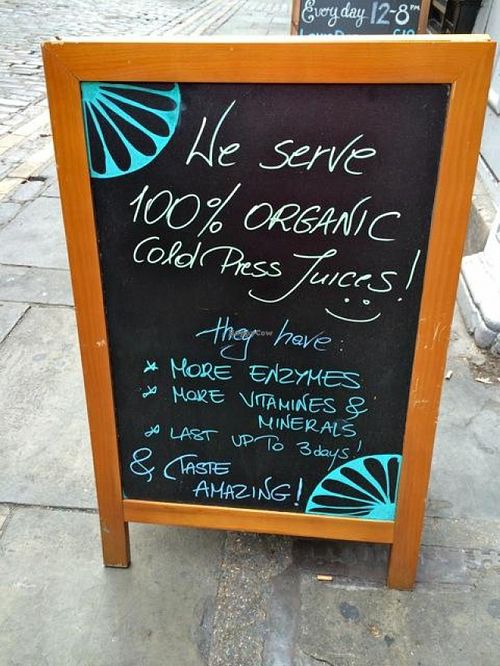 Everyday 12-8pm
We serve
100% ORGANIC
Cold Press Juices!
they have:
* MORE ENZYMES
* MORE VITAMINES &
MINERALS
* LAST UP TO 3 days!
& TASTE
AMAZING!